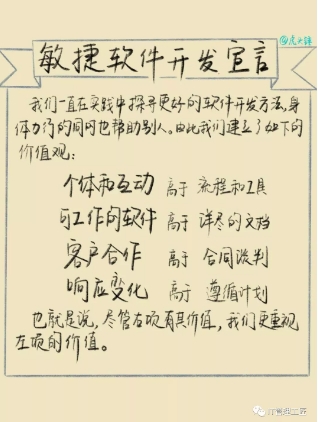 @虎头锤
敏捷软件开发宣言
我们一直在实践中探寻更好的软件开发方法,身
体力行的同时也帮助别人。由此我们建立了如下的
价值观:
个体和互动 高于 流程和工具
可工作的软件 高于 详尽的文档
客户合作 高于 合同谈判
响应变化 高于 遵循计划
也就是说,尽管右项有其价值,我们更重视
左项的价值。